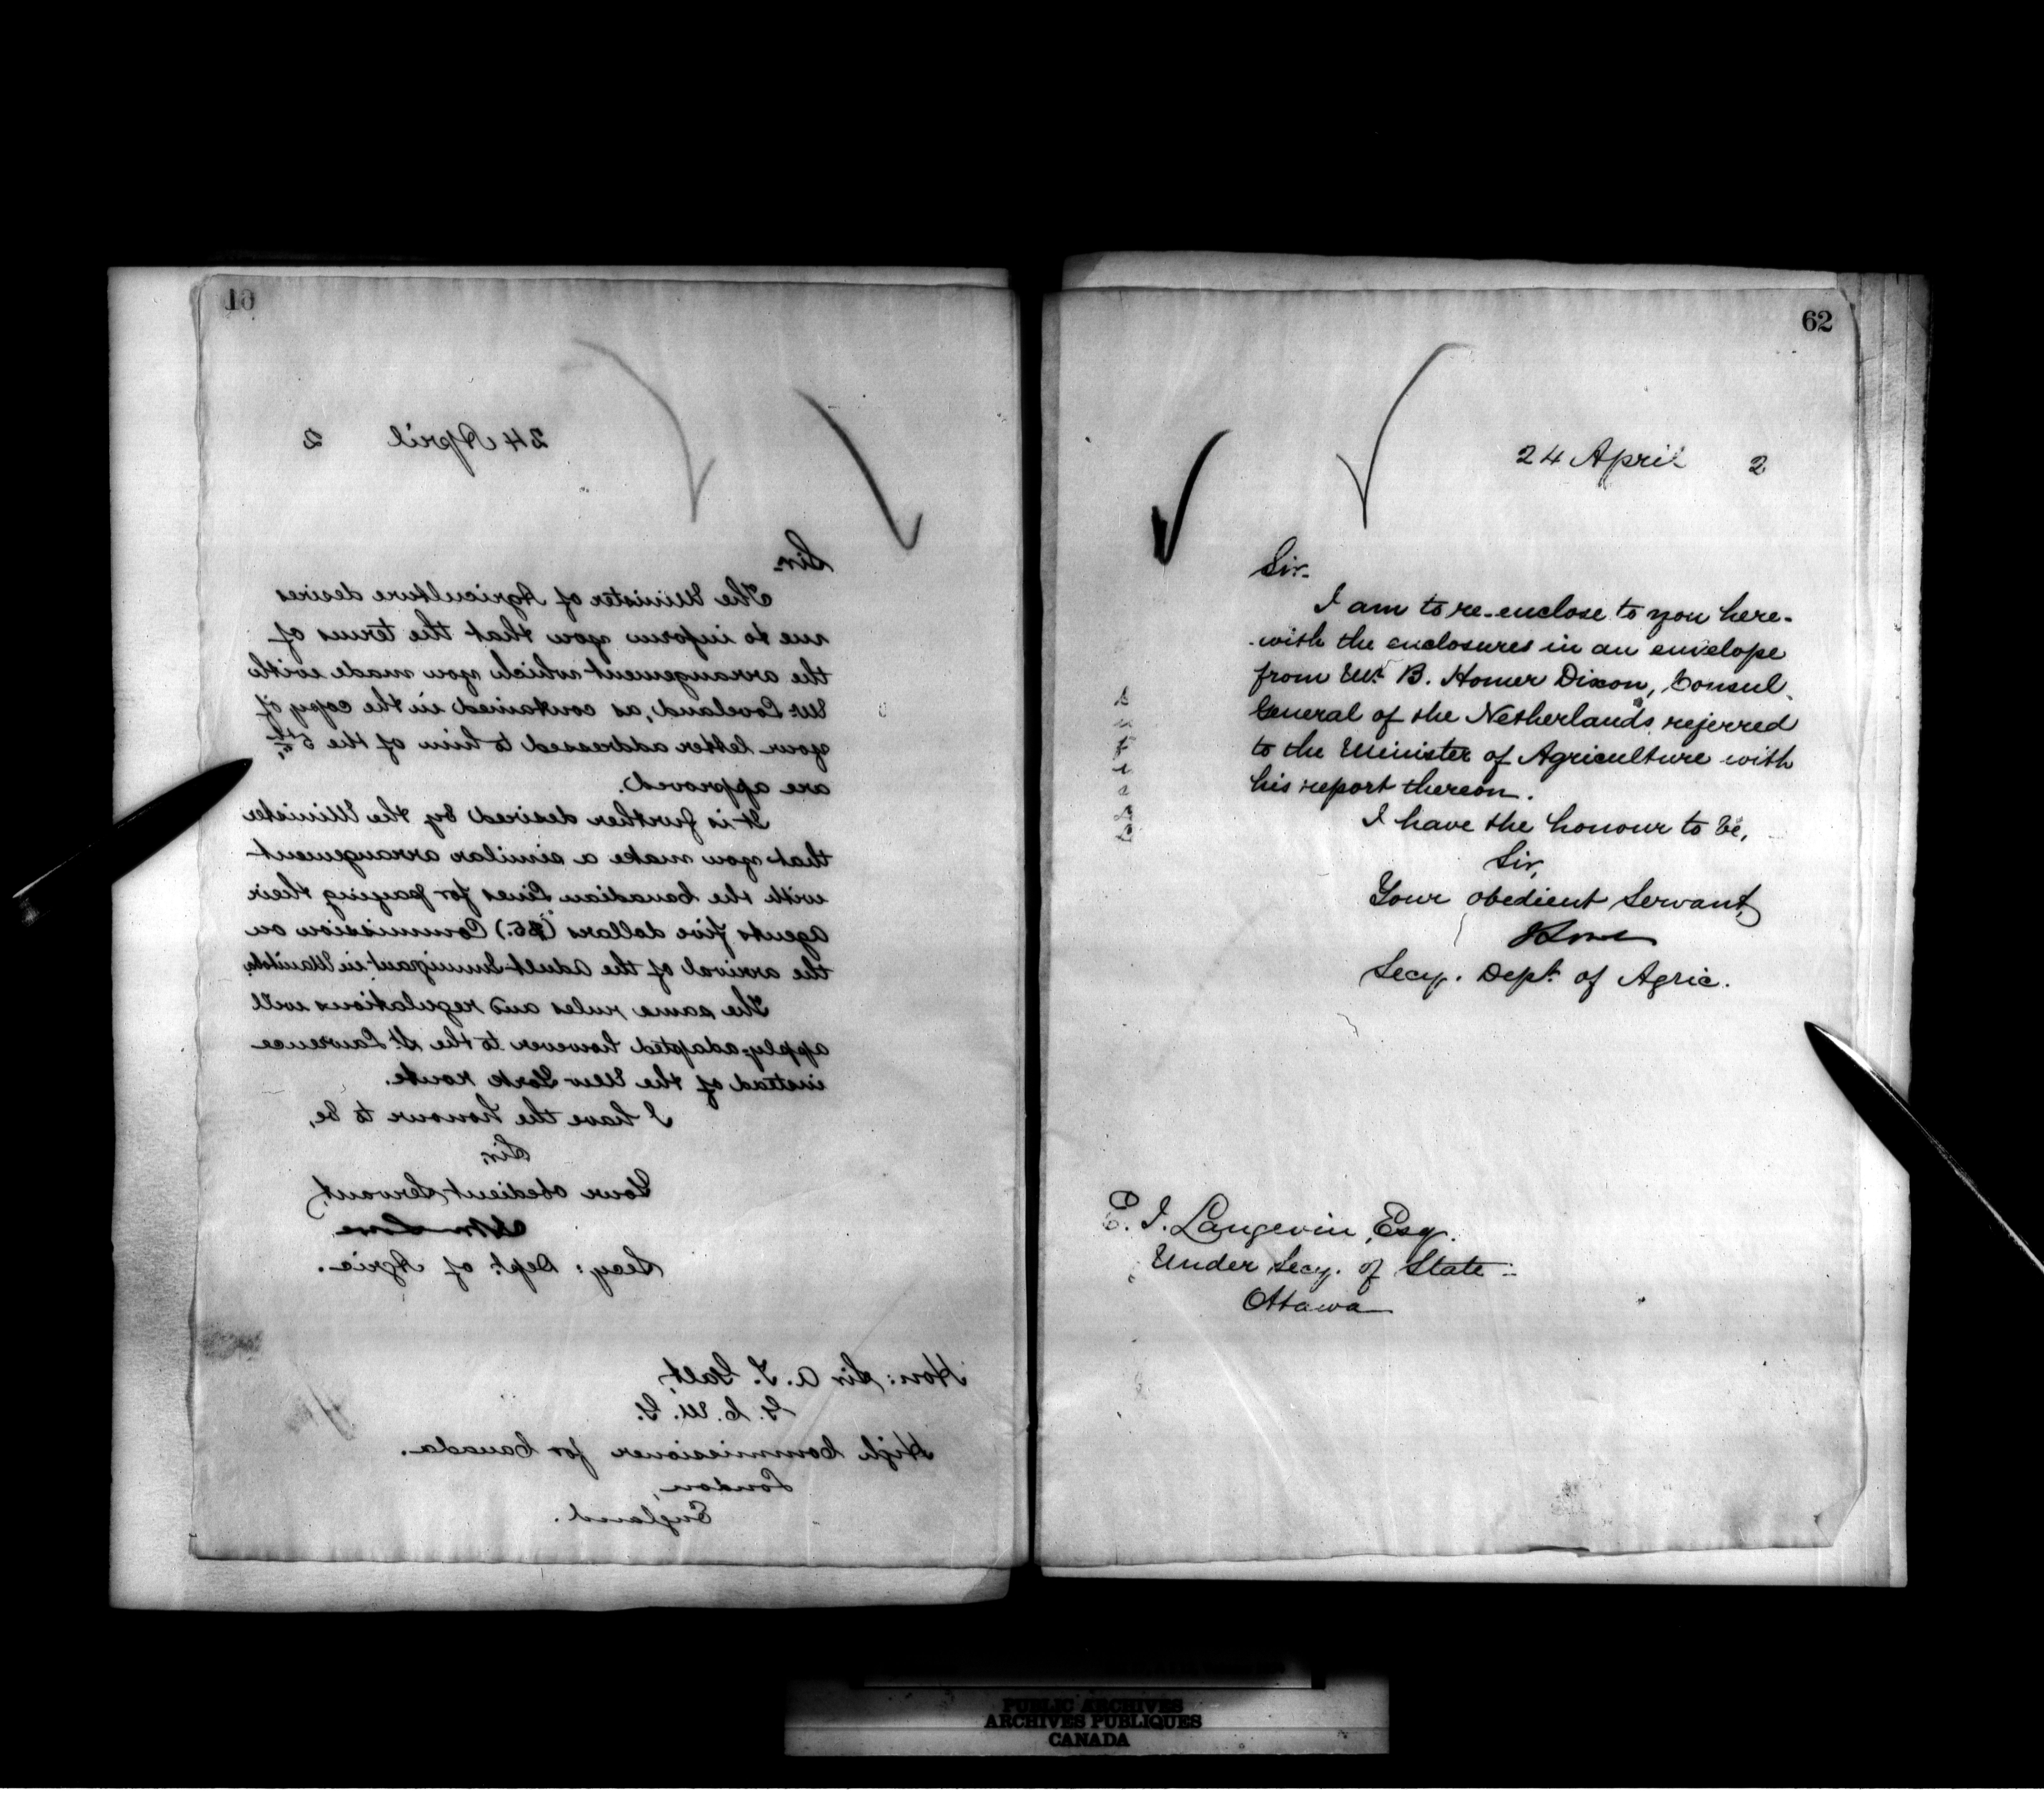 61
24 April 2
Sir-
The Minister of Agriculture desires
me to inform you that the terms of
the arrangement which you made with
Mr. Loveland, as contained in the copy of
your letter addressed to him of the 5th,
are approved.
It is further desired by the Minister
that you make a similar arrangement
with the Canadian Lines for paying their
agents five dollars ($5.) Commission on
the arrival of the adult Immigrant in Manitoba.
The same rules and regulations will
apply; adapted however to the St. Lawrence
instead of the New York route.
I have the honour to be,
Sir
Your obedient Servant,
Lowe
Secy: Dept. of Agric.
Hon: Sir A. T. Galt,
G. C. M. G.
High Commissioner for Canada.
London,
England.
62
24 April 2
Sir-
I am to re-enclose to you here-
-with the enclosures in an envelope
from Mr. B. Homer Dixon, Consul
General of the Netherlands, referred
to the Minister of Agriculture with
his report thereon.
I have the honour to be,
Sir,
Your obedient Servant,
J Lowe
Secy. Dept. of Agric.
E. J. Langevin, Esq.
Under Secy. of State
Ottawa
PUBLIC ARCHIVES
ARCHIVES PUBLIQUES
CANADA